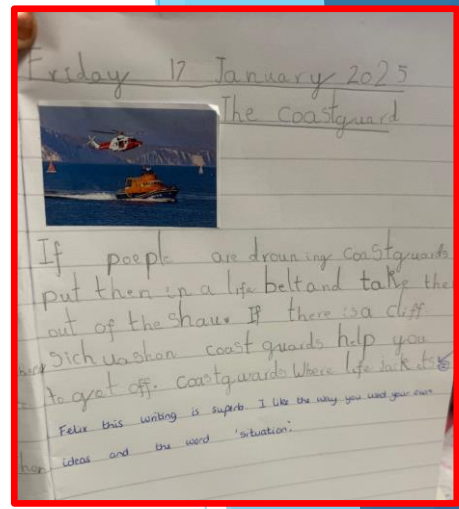 Friday 17 January 2025
The coastguard
If poeple are drouning Coastguards
put then in a life belt and take the
out of the Shaux If there is a cliff
Sich uashon coast guards help you
to grat off. Coastguards Where life jack its
Felix this writing is superb. I like the way you used your own
ideas and the word 'situation'.